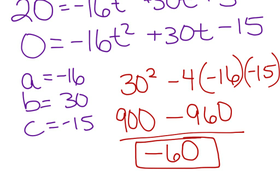 20 = -16t² +30t +5
0 = -16t² +30t -15
a = -16
b = 30
c = -15
30² -4(-16)(-15)
900 - 960
-60